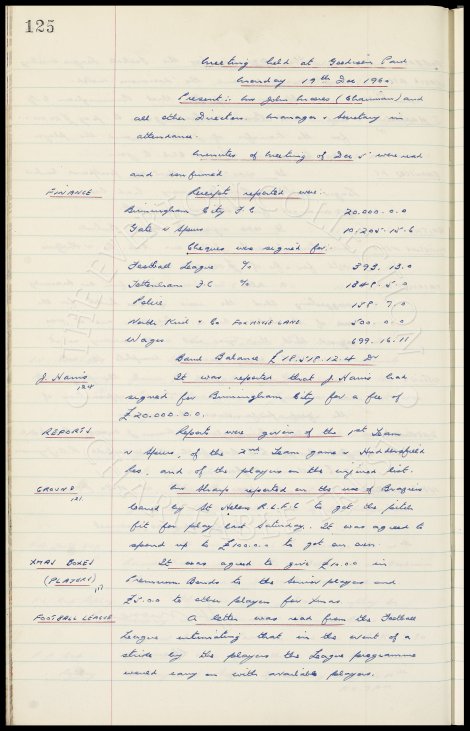 125
Meeting held at Goodison Park
Monday 19th Dec 1960.
Present:- Mr John Moores (Chairman) and
all other Directors. Manager & Secretary in
attendance.
Minutes of Meeting of Dec 5th were read
and confirmed
FINANCE Receipts reported were:
Birmingham City F.C. 20,000.0.0
Gate v Spurs 10,205.15.6
Cheques were signed for:
Football League % 393.13.0
Tottenham F.C %
Police 158.7.0
North Kent & Co 500.0.0
Wages 699.16.11
Bank Balance £18,518.12.4 Dr
J. Harris It was reported that J Harris had
124
signed for Birmingham City for a fee of
£20,000.0.0.
REPORTS Reports were given of the 1st Team
v Spurs, of the 2nd Team game v Huddersfield
Res, and of the players on the injured list.
GROUND Mr Sharp reported on the use of Braziers
121
loaned by St Helens R.L.F.C to get the pitch
fit for play last Saturday. It was agreed to
spend up to £100.0.0 to get our own.
XMAS BOXES It was agreed to give £10.00 in
(PLAYERS) Premium Bonds to the senior players and
£5.00 to other players for Xmas.
FOOTBALL LEAGUE A letter was read from the Football
League intimating that in the event of a
strike by the players the League programme
would carry on with available players.